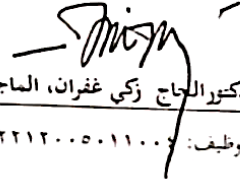 كتور الحاج زكي غفران، الماج
وظيف: ٢٢١٢٠٠٥٠١١٠٠